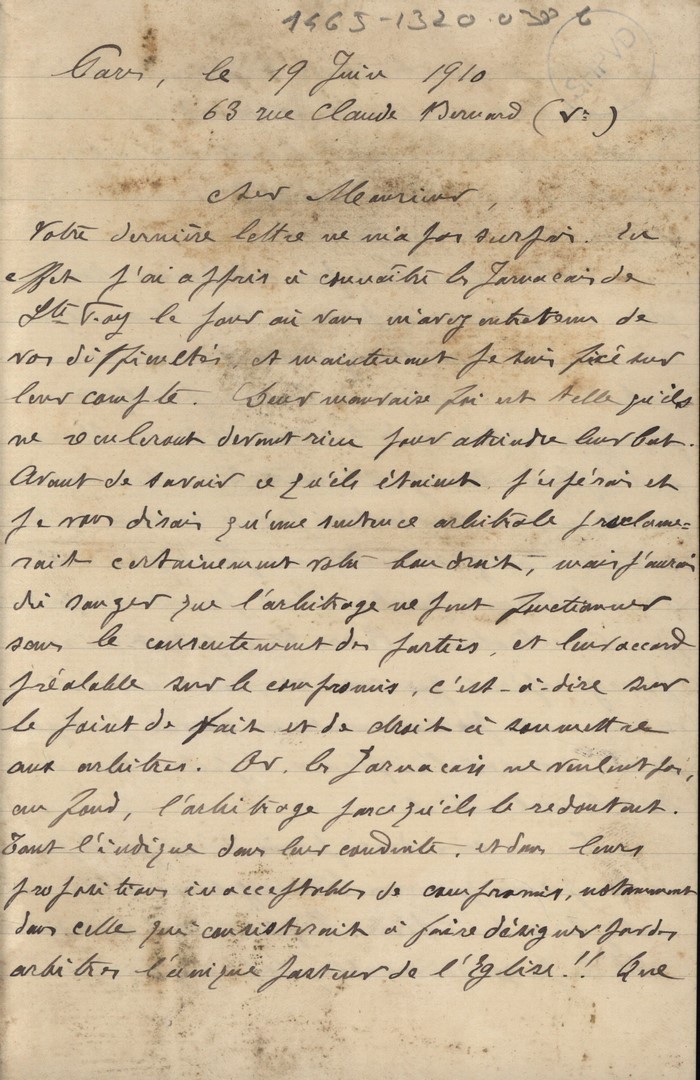 1465-1320.038 6
SHPVD
Paris, le 19 Juin 1910
63 rue Claude Bernard (Ve)
Cher Monsieur,
Votre dernière lettre ne m'a pas surpris. En
effet j'ai appris à connaître les Jarnacais de
Ste Foy le jour où vous m'avez entretenu de
vos difficultés, et maintenant je suis fixé sur
leur compte. Leur mauvaise foi est telle qu'ils
ne reculeront devant rien pour atteindre leur but.
Avant de savoir ce qu'ils étaient j'espérais et
je vous disais qu'une sentence arbitrale proclame-
rait certainement votre bon droit, mais j'aurais
dû songer que l'arbitrage ne peut fonctionner
sans le consentement des parties, et leur accord
préalable sur le compromis, c'est-à-dire sur
le point de fait et de droit à soumettre
aux arbitres. Or, les Jarnacais ne veulent pas,
au fond, l'arbitrage parce qu'ils le redoutent.
Tout l'indique dans leur conduite, et dans leurs
propositions inacceptables de compromis, notamment
dans celle qui consisterait à faire désigner par des
arbitres l'unique pasteur de l'Eglise!! Que